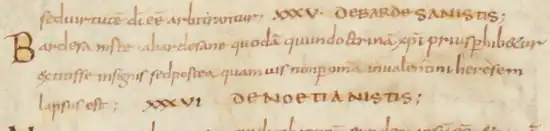 sed virtutē dī eē arbitrantur; XXXV. DE BARDESANISTIS;
Bardesanistae a bardesane quodā qui in doctrina xp̄i prius phibetur
extitisse insignis sed postea quamvis non p omnia in valentini heresem
lapsus est; XXXVI DE NOETIANISTIS;